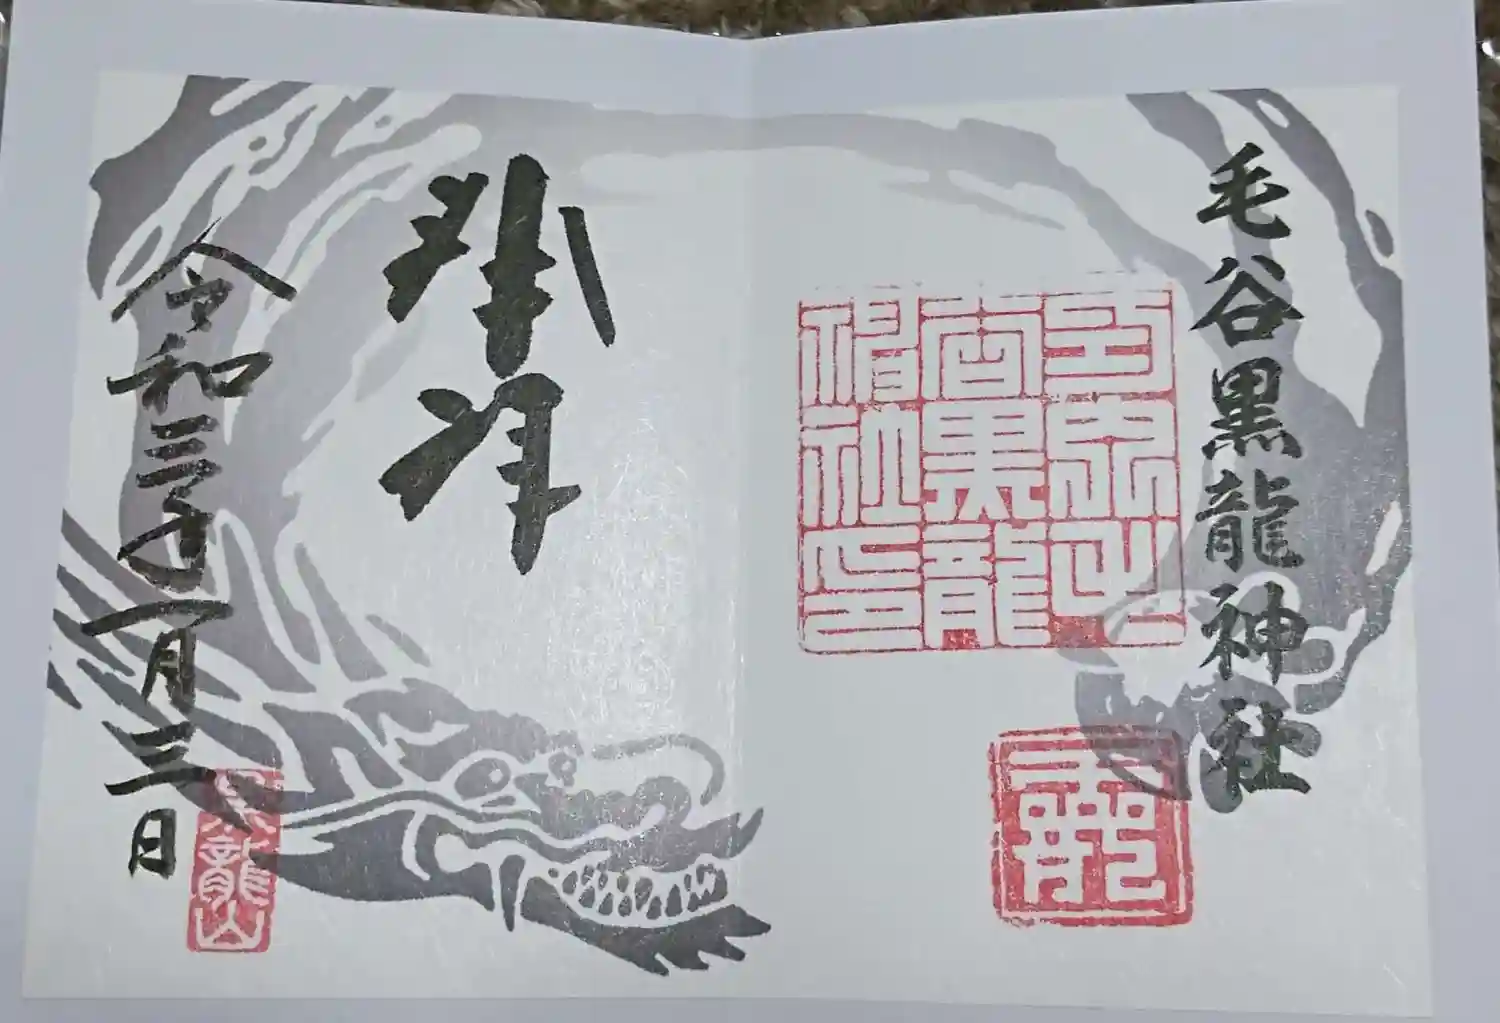 毛谷黒龍神社
龍
奉拝
令和三年一月三日
黒龍山